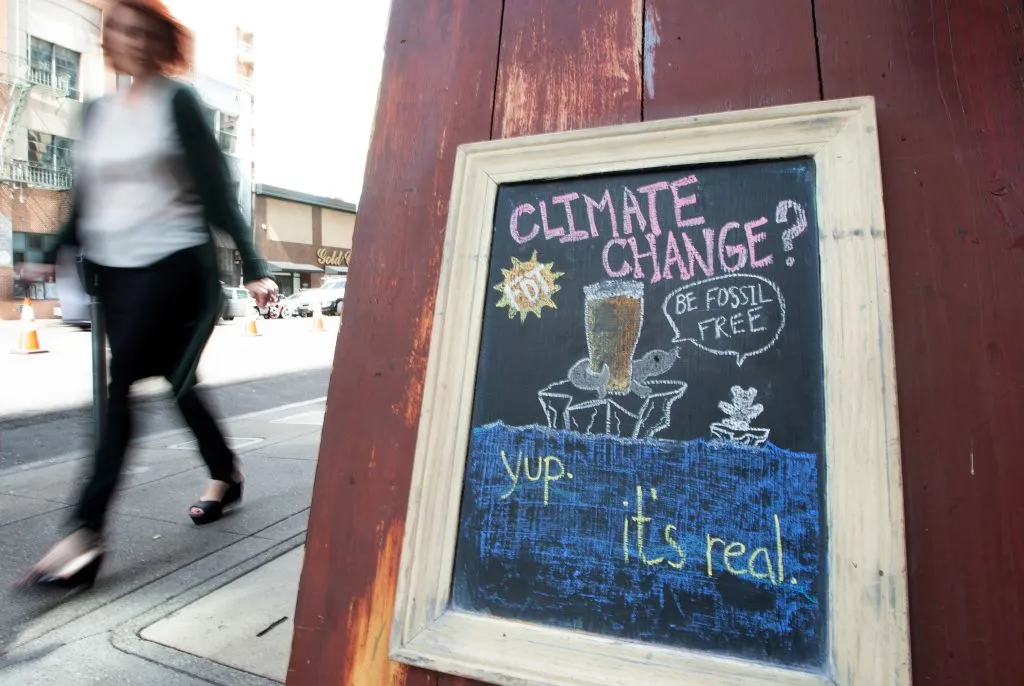 CLIMATE
CHANGE?
FDI
BE FOSSIL
FREE
yup.
it's real.
Gold